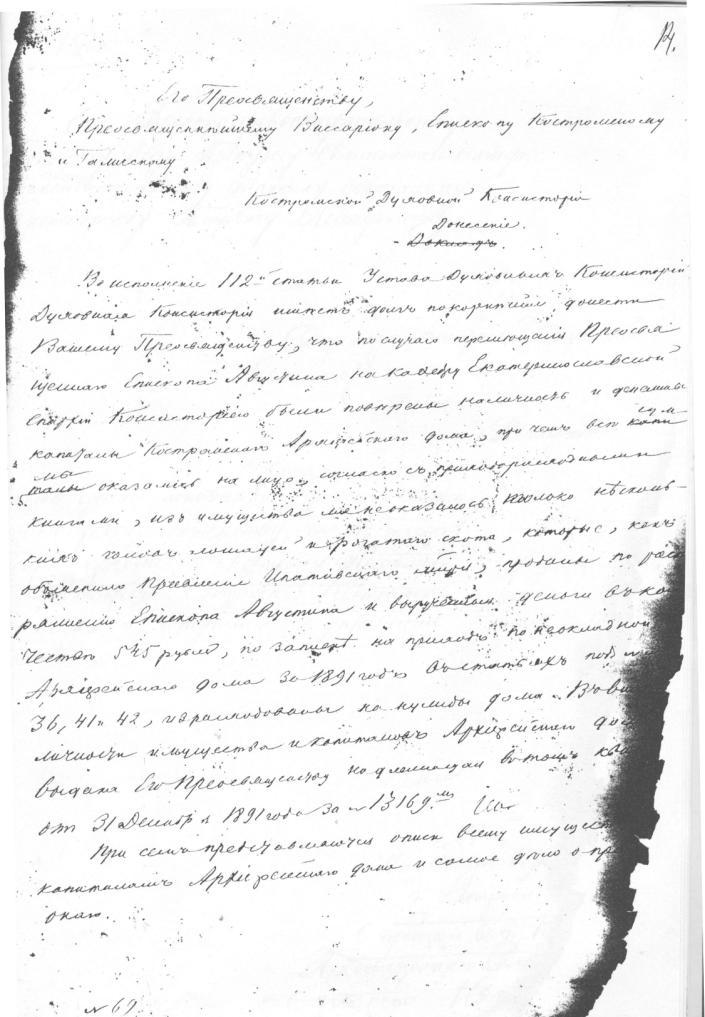 Его Преосвященству,
Преосвященнѣйшему Виссаріону, Епископу Костромскому
и Галичскому
Костромской Духовной Консисторіи
Донесеніе.
Докладъ.
Во исполненіе 112й статьи Устава Духовныхъ Консисторій
Духовная Консисторія имѣетъ долгъ покорнѣйше донести
Вашему Преосвященству, что по случаю перемѣщенія Преосвя
щеннаго Епископа Августина на каѳедру Екатеринославской
епархіи Консисторіею были повѣрены наличность и денежные
капиталы Костромскаго Архіерейскаго дома, при чемъ всѣ
оказались на лицо, согласно съ приходорасходными
книгами, изъ имущества же не оказалось только нѣсколь-
кихъ головъ лошадей и рогатаго скота, которые, какъ
объяснило Правленіе Ипатіевскаго проданы по рас
ряженію Епископа Августина и вырученныя деньги въ ко
чествѣ 545 рублей, по записи на приходъ по неокладной
Архіерейскаго дома за 1891 годъ въ статьяхъ под №
36, 41 и 42, израсходованы на нужды дома. В
личности имущества и капиталовъ Архіерейскаго до
выдана Его Преосвященству надлежащая въ томъ кви
отъ 31 Декабря 1891 года за № 13169.мъ
При семъ представляются описи всему имущест
капиталамъ Архіерейскаго дома и самое дѣло о пр
оною.
№ 69